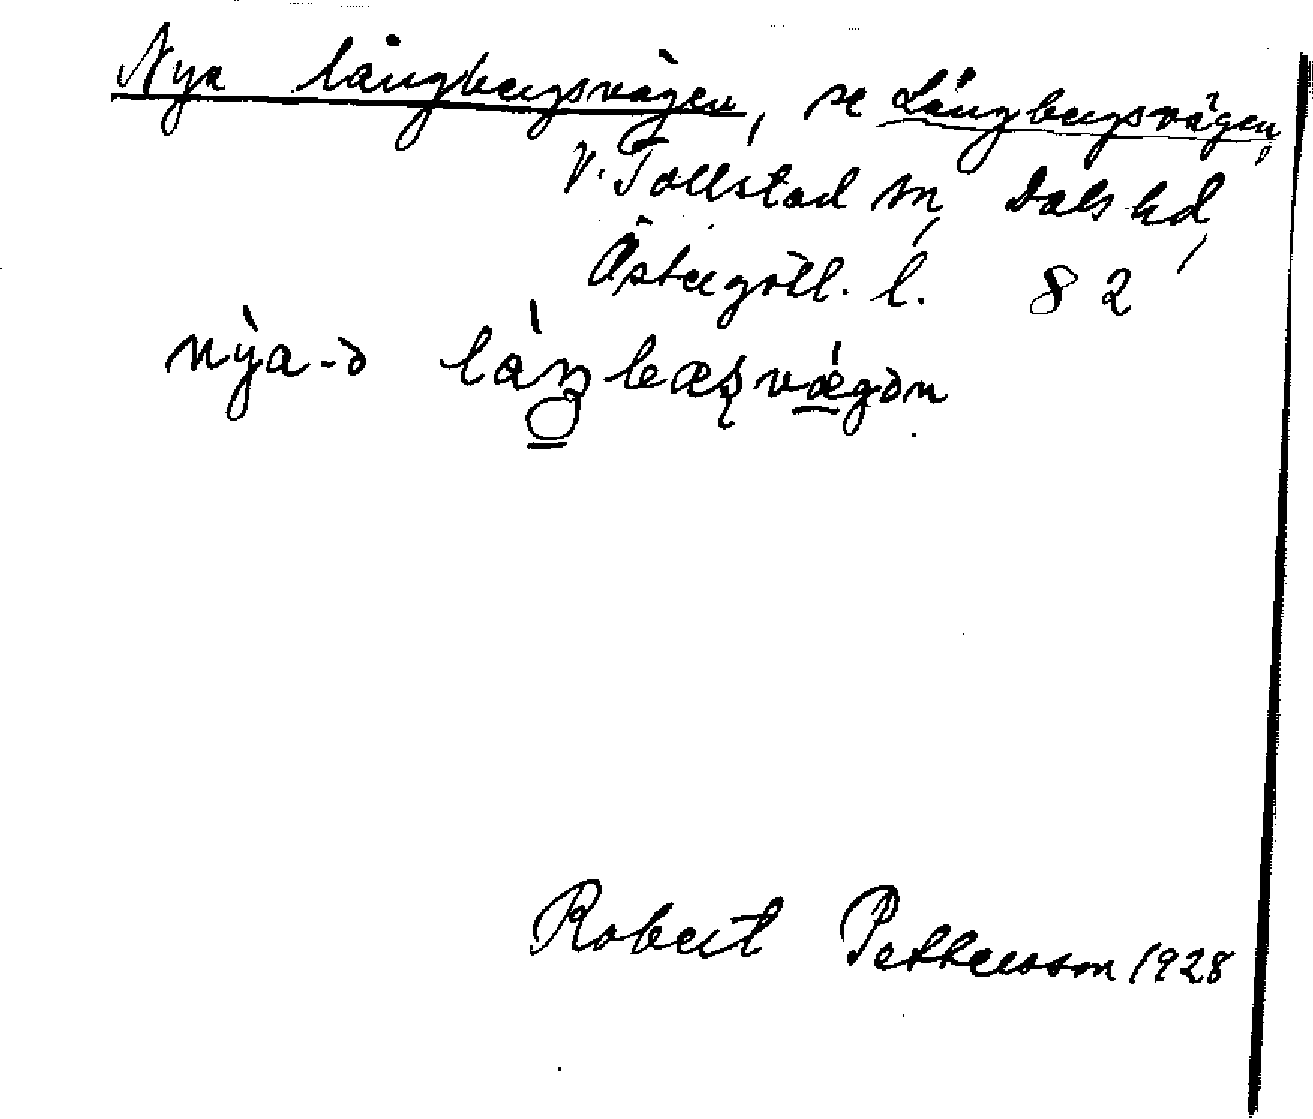 Nya Långbergsvägen, se Långbergsvägen,
V. Tollstad sn, Dals hd,
Östergötl. l. 82
nỳa-ə láŋbæʂvǽgən
Robert Pettersson 1928